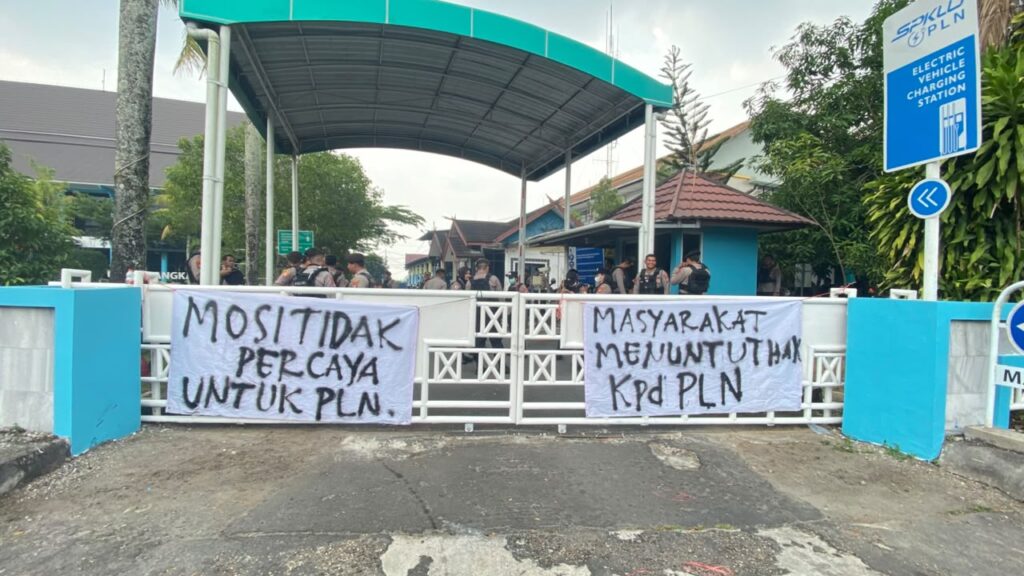 MOSI TIDAK
PERCAYA
UNTUK PLN.
MASYARAKAT
MENUNTUT HAK
Kpd PLN
SPKLU
PLN
ELECTRIC
VEHICLE
CHARGING
STATION